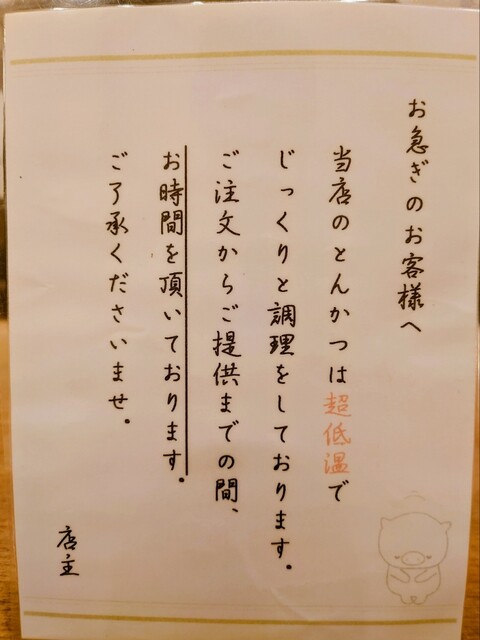 お急ぎのお客様へ
当店のとんかつは超低温で
じっくりと調理をしております。
ご注文からご提供までの間、
お時間を頂いております。
ご了承くださいませ。
店主